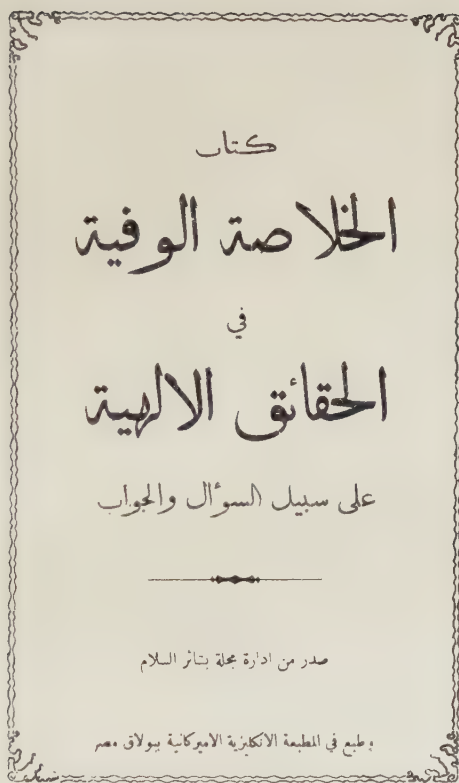 كتاب
الخلاصة الوفية
في
الحقائق الالهية
على سبيل السوٴال والجواب
صدر من ادارة مجلة بشائر السلام
وطبع في المطبعة الانكليزية الاميركانية ببولاق مصر